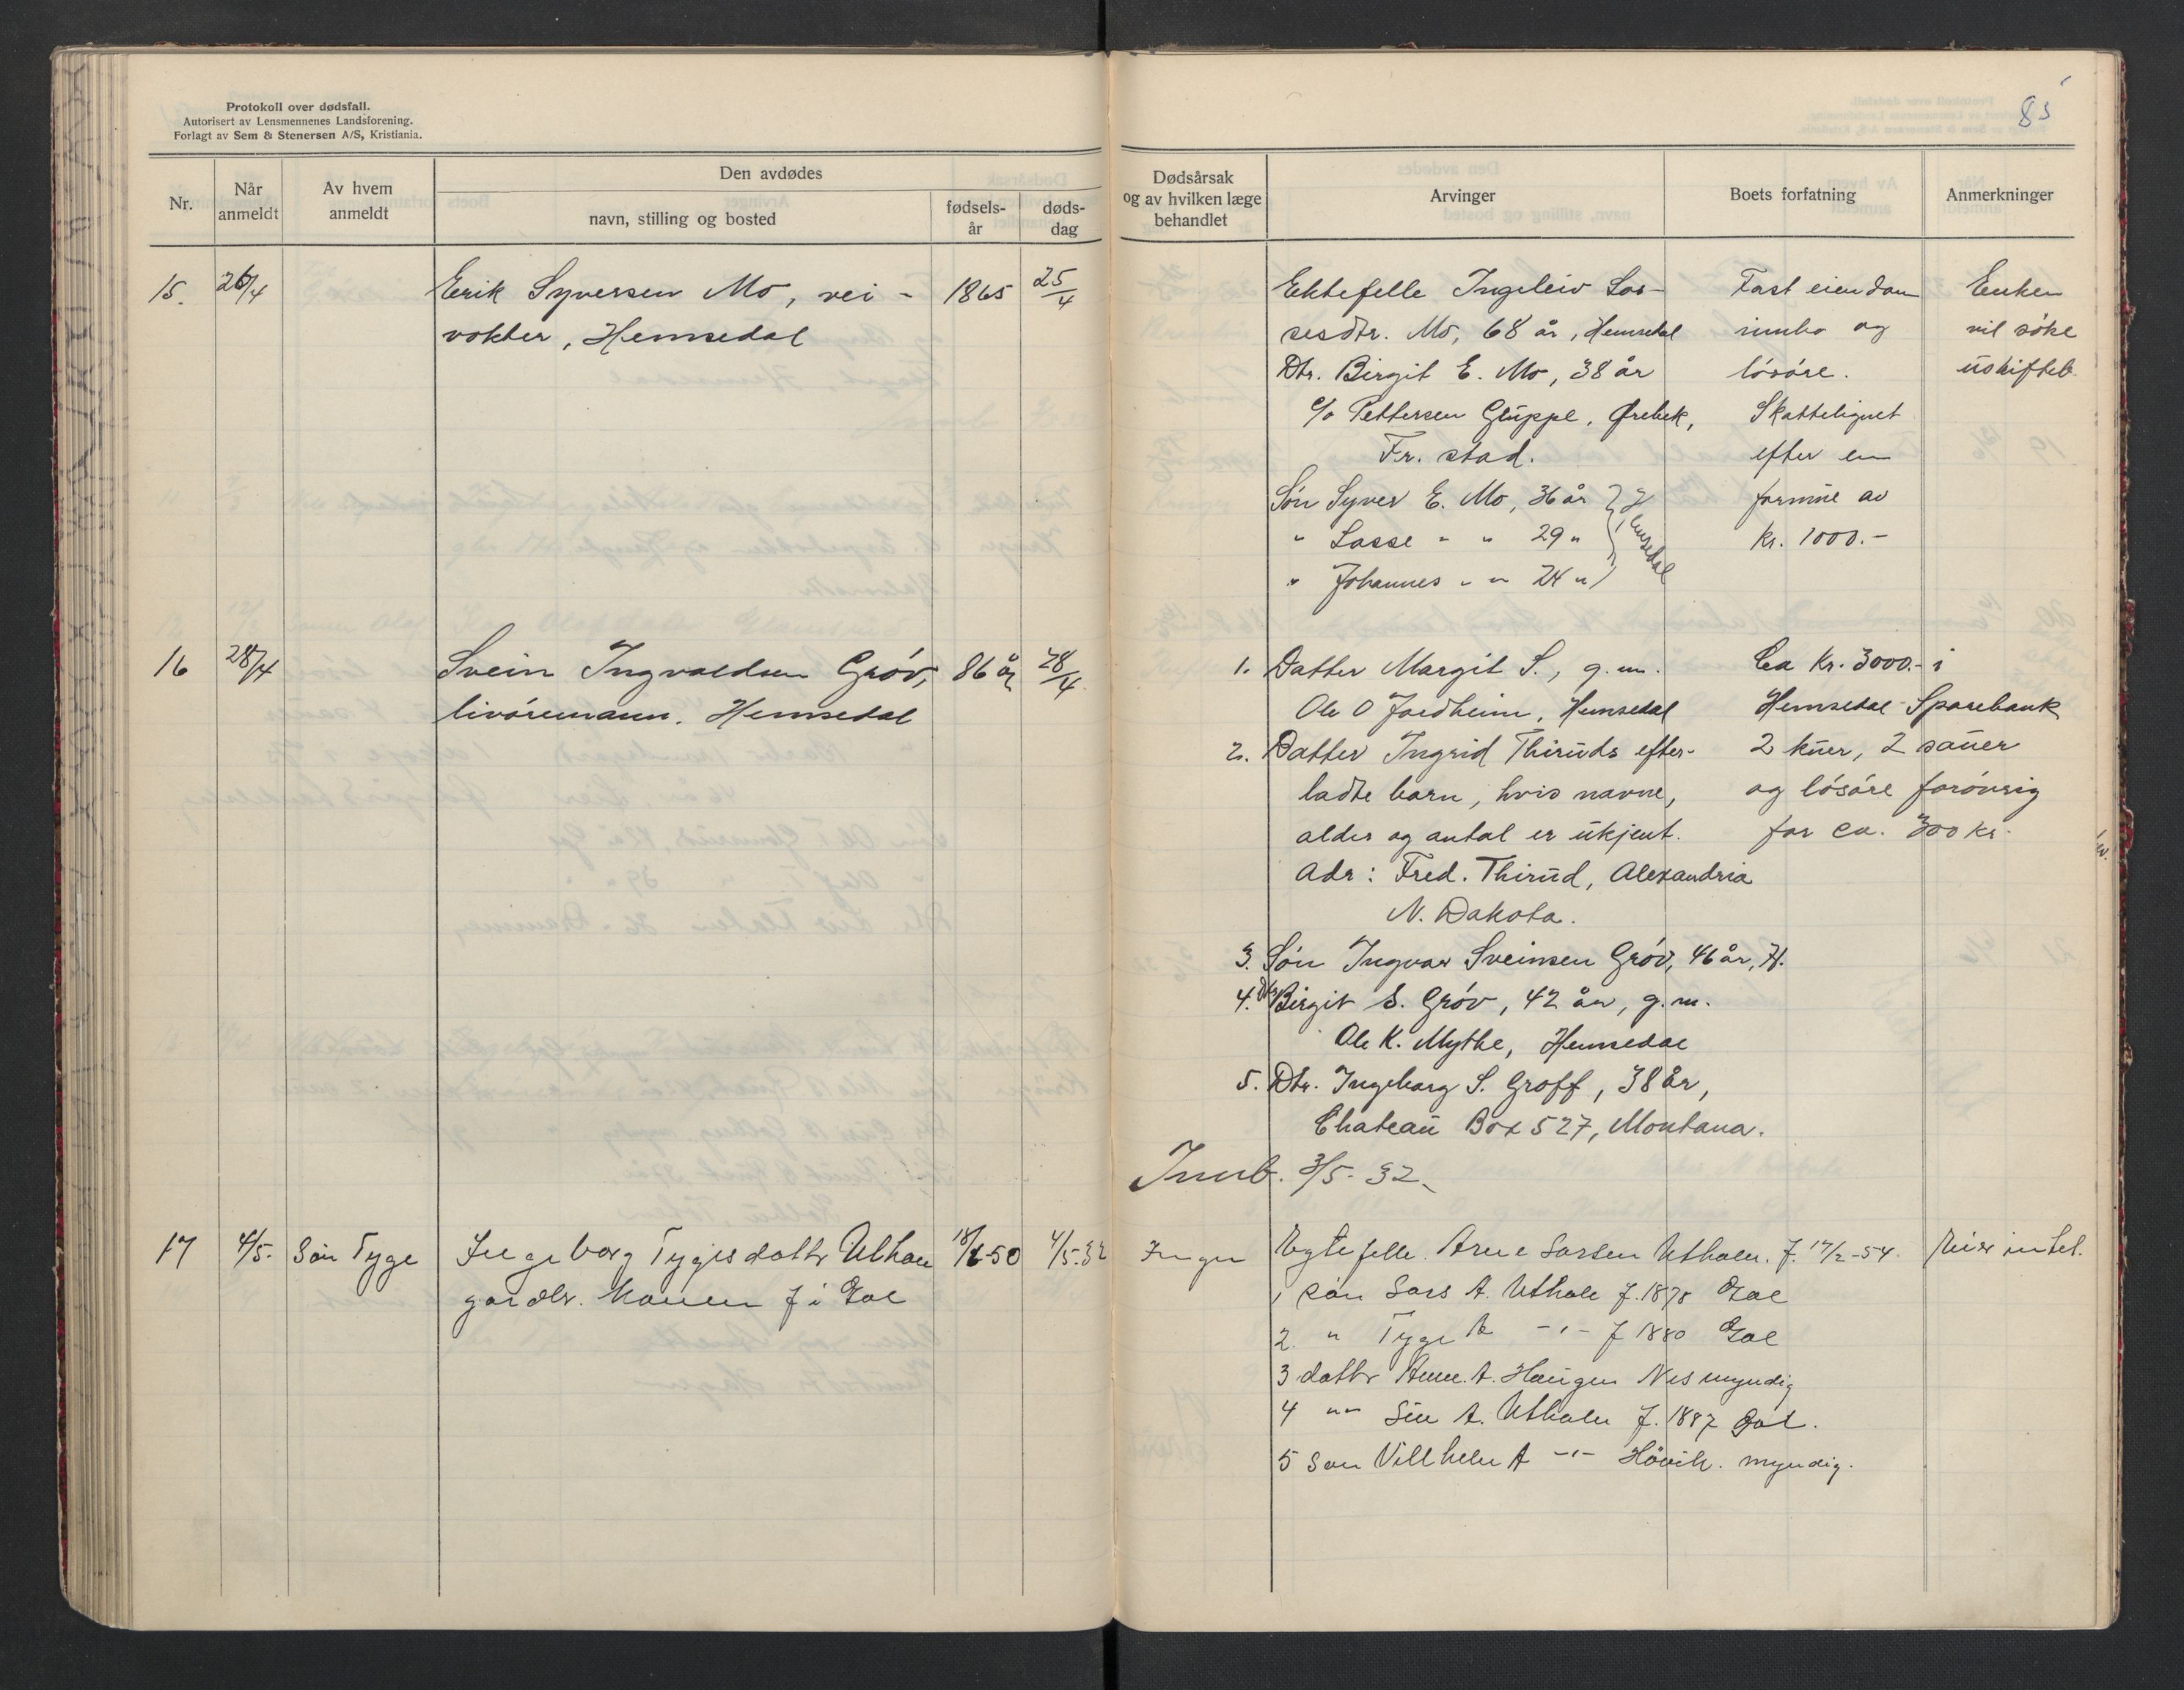 Protokoll over dødsfall.
Autorisert av Lensmennenes Landsforening.
Forlagt av Sem & Stenersen A/S, Kristiania.
85
Nr.
Når anmeldt
Av hvem anmeldt
Den avdødes
navn, stilling og bosted
fødsels-år
døds-dag
Dødsårsak og av hvilken læge behandlet
Arvinger
Boets forfatning
Anmerkninger
15. 26/4 Erik Syversen Mo, vei- 1865 25/4
vokter, Hemsedal
Ektefelle Ingeleiv Las-
sesdtr. Mo, 68 år, Hemsedal
Dtr. Birgit E. Mo, 38 år
c/o Pettersen Gluppe, Ørebek,
Fr. stad.
Søn Syver E. Mo, 36 år
" Lasse " " 29 "
" Johannes " " 24 "
Hemsedal
Fast eiendom
innbo og
løsøre.
Skattelignet
efter en
formue av
kr. 1000.-
Enken
vil søke
uskiftet
16 28/4 Svein Ingvaldsen Grøv, 86 år 28/4
livøremann. Hemsedal
1. Datter Margit S., g.m.
Ole O Jordheim, Hemsedal
2. Datter Ingrid Thiruds efter-
ladte barn, hvis navne,
alder og antal er ukjent.
Adr: Fred. Thirud, Alexandria
N. Dakota.
3. Søn Ingvar Sveinsen Grøv, 46 år, H.
4. Dtr Birgit S. Grøv, 42 år, g.m.
Ole K. Mythe, Hemsedal
5. Dtr. Ingeborg S. Groff, 38 år,
Chateau Box 527, Montana.
Ca kr. 3000.- i
Hemsedal Sparebank
2 kuer, 2 sauer
og løsøre forøvrig
for ca. 300 kr.
Innb. 3/5-32
17 4/5. Søn Tyge Ingeborg Tygesdattr Uthau 18/6-50 4/5-32
gardbr. konen f i Gol
Ingen
Egtefelle. Arne Larsen Uthalen. f. 17/2-54.
1 søn Lars A. Uthale f. 1878 Gol
2. " Tyge A -"- f 1880 Gol
3 dattr Anne. A. Haugen Nes myndig
4 "" Siri A. Uthalen f. 1887 Gol.
5 Søn Villhelm A -"- Høvik. myndig.
Eier intet.